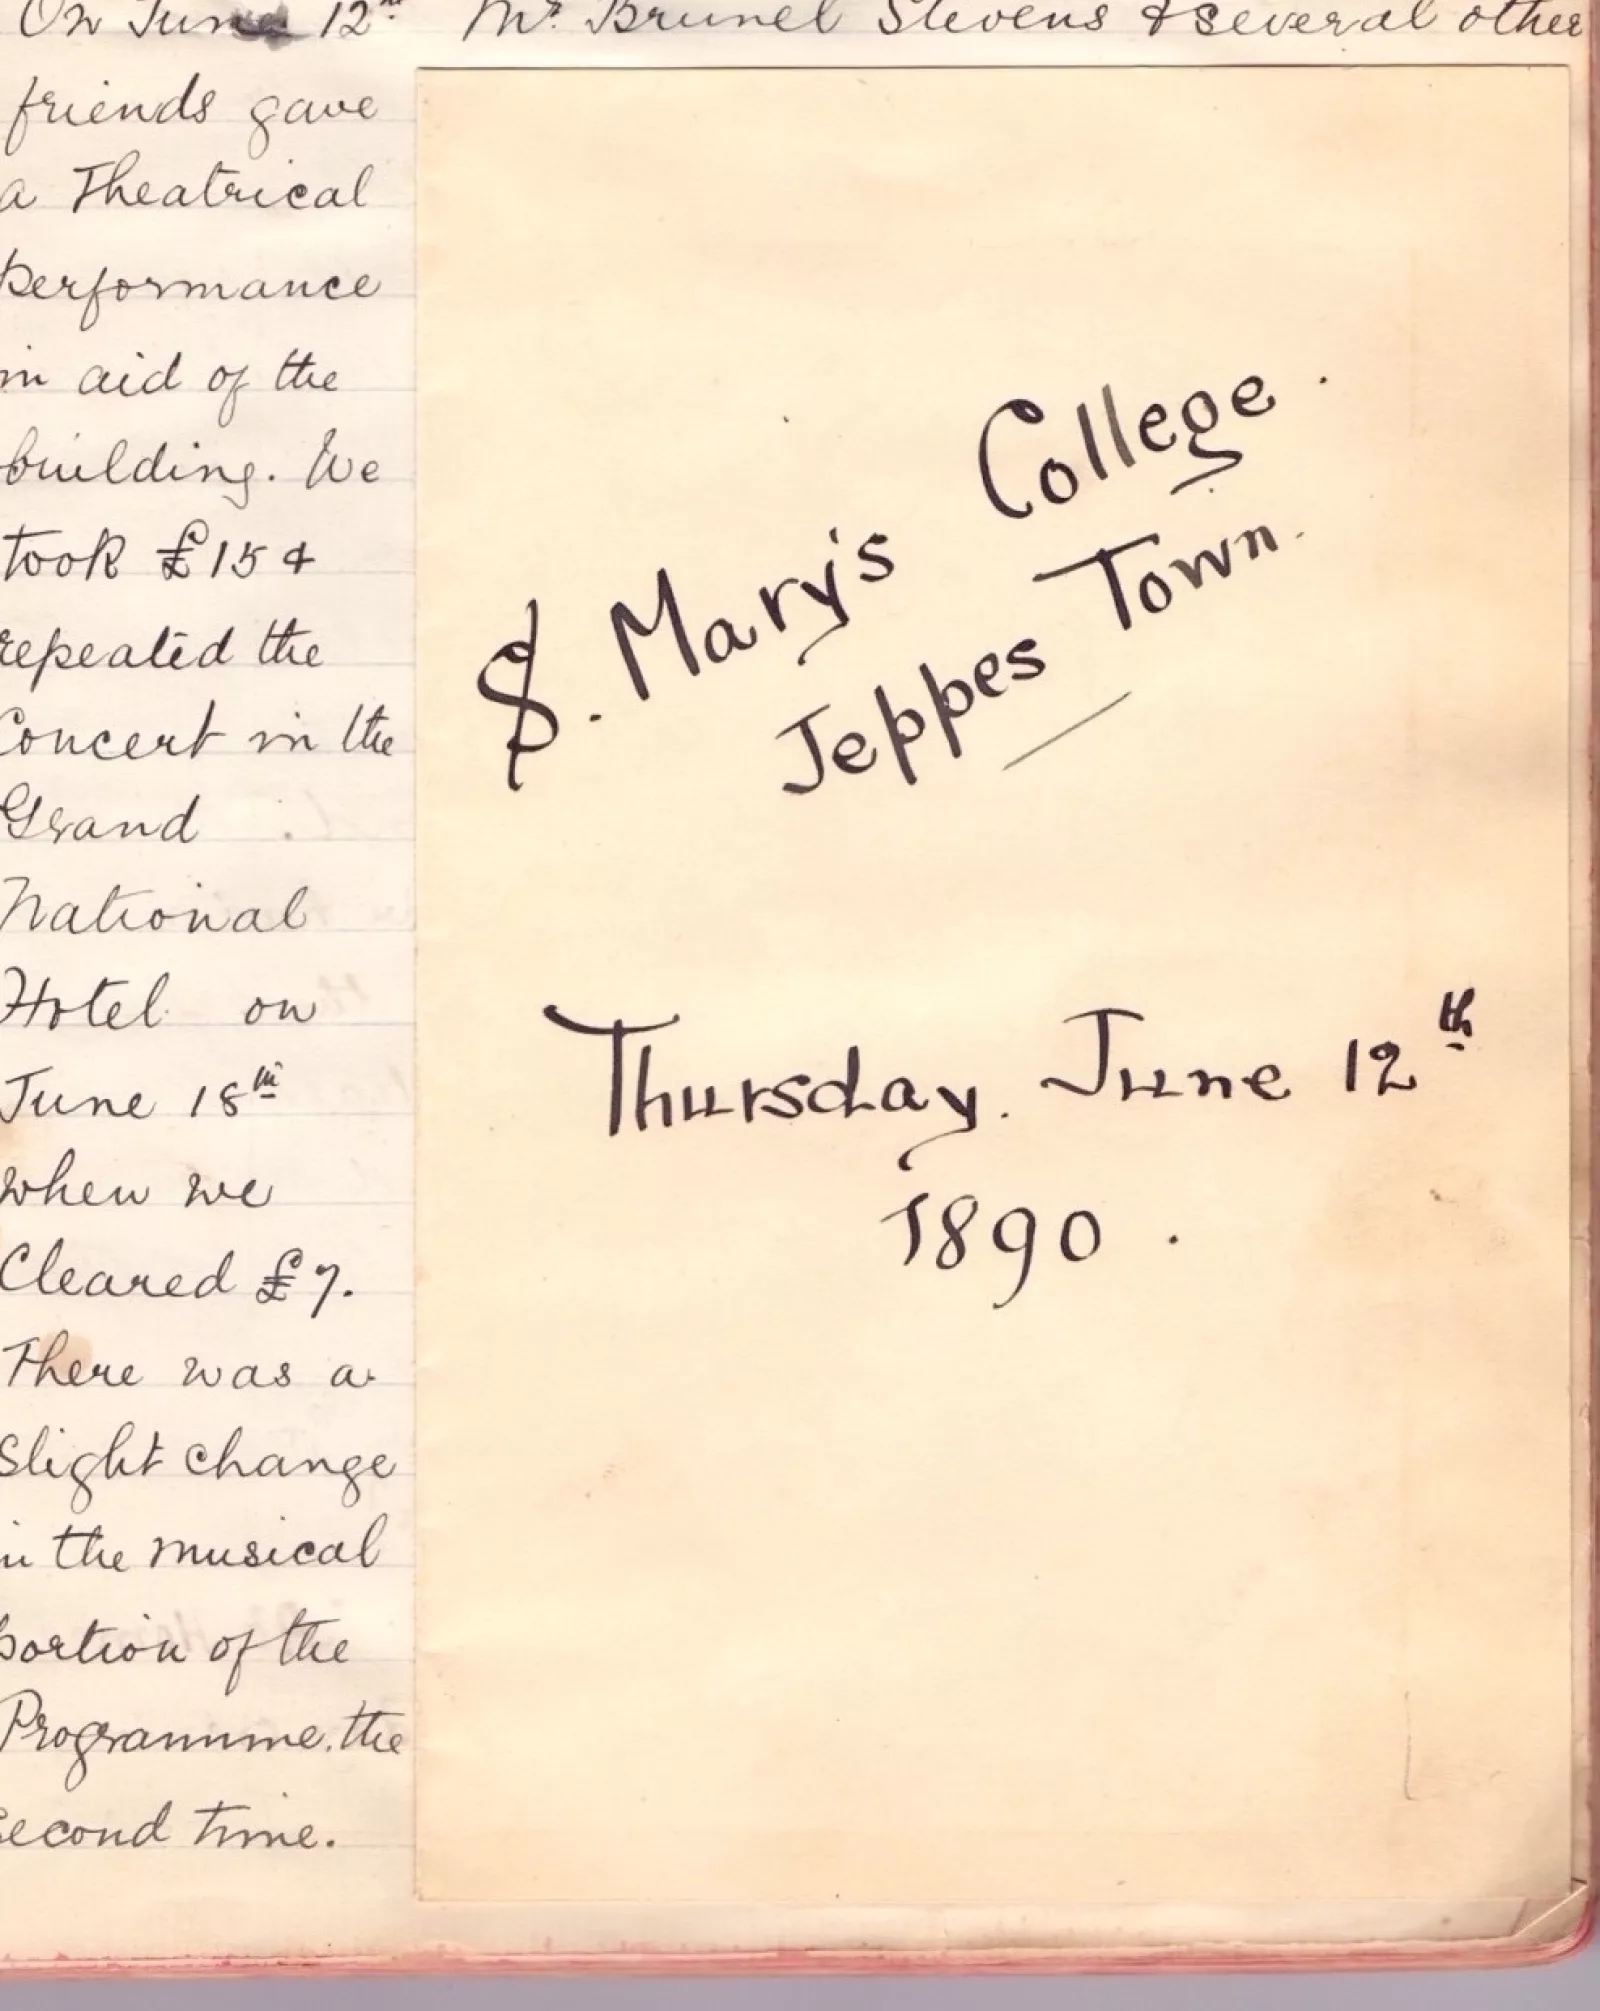 On June 12th Mr. Brunel Stevens & several other
friends gave
a Theatrical
performance
in aid of the
building. We
took £15 &
repeated the
Concert in the
Grand
National
Hotel on
June 18th
when we
Cleared £7.
There was a
slight change
in the musical
portion of the
Programme. the
second time.
S. Mary's College.
Jeppes Town.
Thursday. June 12th
1890.